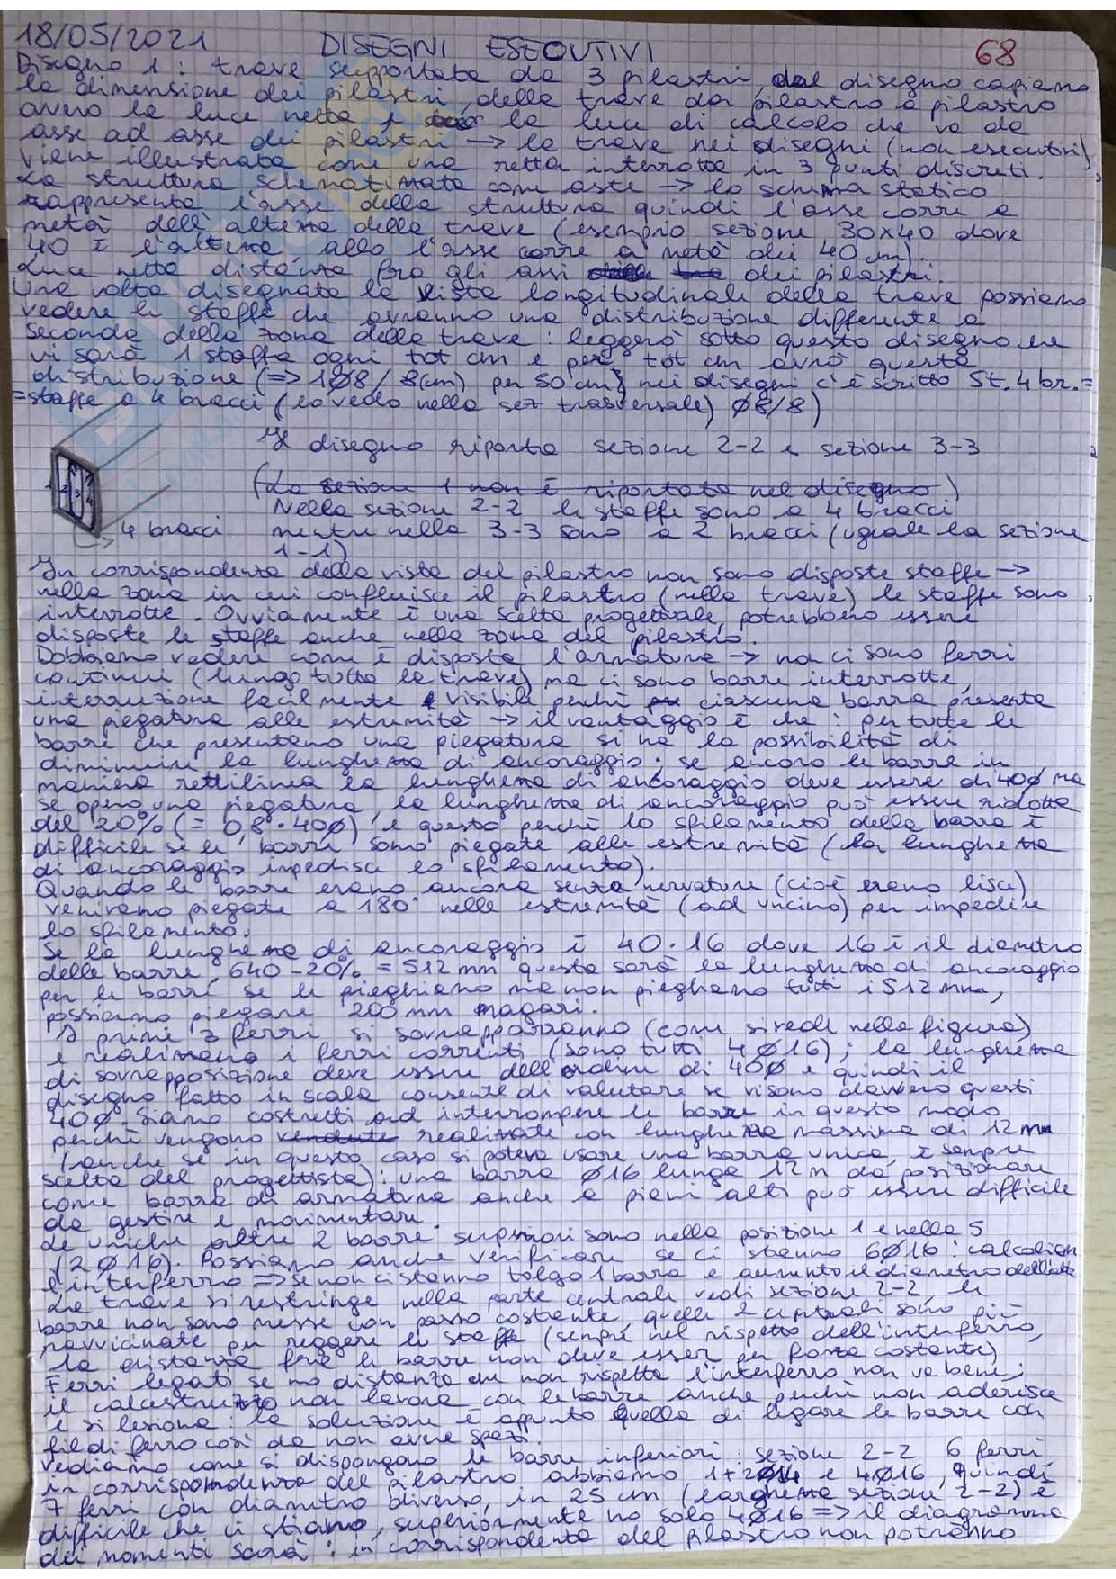 18/05/2021 DISEGNI ESECUTIVI 68
Disegno 1: trave supportata da 3 pilastri, dal disegno capiamo
la dimensione dei pilastri, della trave da pilastro a pilastro
avero la luce netta e la luce di calcolo che va da
asse ad asse dei pilastri → la trave nei disegni (non esecutivi)
viene illustrata come una retta interrotta in 3 punti discreti.
La struttura schematizzata come aste → lo schema statico
rappresenta l'asse della struttura quindi l'asse corre a
metà dell'altezza della trave (esempio sezione 30x40 dove
40 è l'altezza allo l'asse corre a metà dei 40 cm).
Luce netta distanza fra gli assi dei pilastri.
Una volta disegnata la vista longitudinale della trave possiamo
vedere le staffe che avranno una distribuzione differente a
seconda della zona della trave: leggerò sotto questo disegno che
vi sarà 1 staffa ogni tot cm e per tot cm avrò questa
distribuzione (=> 1Ø8/8(cm) per 50 cm} nei disegni c'è scritto St. 4 br. =
= staffe a 4 bracci (lo vedo nella sez trasversale) Ø8/8)
Il disegno riporta sezione 2-2 e sezione 3-3
(La sezione 1 non è riportata nel disegno)
Nella sezione 2-2 le staffe sono a 4 bracci
4 bracci mentre nella 3-3 sono a 2 bracci (uguale la sezione
1-1)
In corrispondenza della vista del pilastro non sono disposte staffe →
nella zona in cui confluisce il pilastro (nella trave) le staffe sono
interrotte. Ovviamente è una scelta progettuale, potrebbero essere
disposte le staffe anche nella zona del pilastro.
Dobbiamo vedere come è disposta l'armatura → non ci sono ferri
continui (lungo tutta la trave) ma ci sono barre interrotte,
interruzione facilmente visibile perché ciascuna barra presenta
una piegatura alle estremità → il vantaggio è che: per tutte le
barre che presentano una piegatura si ha la possibilità di
diminuire la lunghezza di ancoraggio: se ancoro le barre in
maniera rettilinea la lunghezza di ancoraggio deve essere di 40Ø ma
se opero una piegatura, la lunghezza di ancoraggio può essere ridotta
del 20% (= 0,8·40Ø) e questo perché lo sfilamento della barra è
difficile se le barre sono piegate alle estremità (la lunghezza
di ancoraggio impedisce lo sfilamento).
Quando le barre erano ancora senza nervature (cioè erano lisce)
venivano piegate a 180° nelle estremità (ad uncino) per impedire
lo sfilamento.
Se la lunghezza di ancoraggio è 40·16 dove 16 è il diametro
delle barre 640-20% = 512 mm questa sarà la lunghezza di ancoraggio
per le barre se le pieghiamo ma non pieghiamo tutti i 512 mm,
possiamo piegare 200 mm magari.
I primi 3 ferri si sovrapporranno (come si vede nella figura)
e realizzano i ferri correnti (sono tutti 4Ø16); la lunghezza
di sovrapposizione deve essere dell'ordine di 40Ø e quindi il
disegno fatto in scala consente di valutare se vi sono davvero questi
40Ø. Siamo costretti ad interrompere le barre in questo modo
perché vengono vendute realizzate con lunghezza massima di 12 m
(anche se in questo caso si poteva usare una barra unica, è sempre
scelta del progettista): una barra Ø16 lunga 12 m da posizionare
come barra di armatura anche a piani alti può essere difficile
da gestire e movimentare.
Le uniche altre 2 barre superiori sono nella posizione 1 e nella 5
(2Ø16). Possiamo anche verificare se ci stanno 6Ø16: calcoliam
l'interferro => se non ci stanno tolgo 1 barra e aumento il diametro dell'altra
La trave si restringe nella parte centrale vedi sezione 2-2, le
barre non sono messe con passo costante, quelle centrali sono più
ravvicinate per reggere le staffe (sempre nel rispetto dell'interferro,
la distanza fra le barre non deve esser per forza costante)
Ferri legati se no distanza che non rispetta l'interferro non va bene:
il calcestruzzo non lavora con le barre anche perché non aderisce
e si lesiona: la soluzione è appunto quella di legare le barre con
fil di ferro così da non avere spazi.
Vediamo come si dispongono le barre inferiori: sezione 2-2 6 ferri
in corrispondenza del pilastro abbiamo 1+2Ø14 e 4Ø16, quindi
7 ferri con diametro diverso, in 25 cm (larghezza sezione 2-2) è
difficile che ci stiano, superiormente ho solo 4Ø16 => il diagramma
dei momenti sarà: in corrispondenza del pilastro non potranno